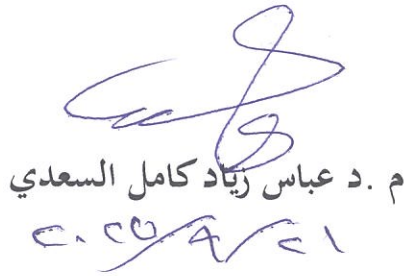 م .د عباس زياد كامل السعدي
٢٠٢٥/٩/٢١